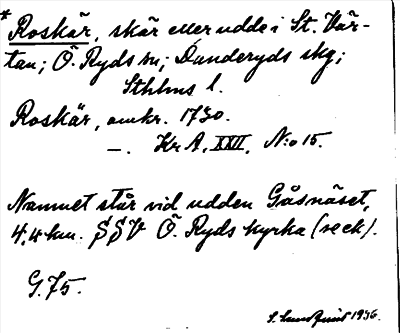 * Roskär, skär eller udde i St. Vär-
tan; Ö. Ryds sn; Danderyds skg;
Sthlms l.
Roskär, omkr. 1730.
—. Kr A, XXII, N:o 15.
Namnet står vid udden Gåsnäset,
4,4 km. SSV Ö. Ryds kyrka (se ek).
G. 75.
1936.